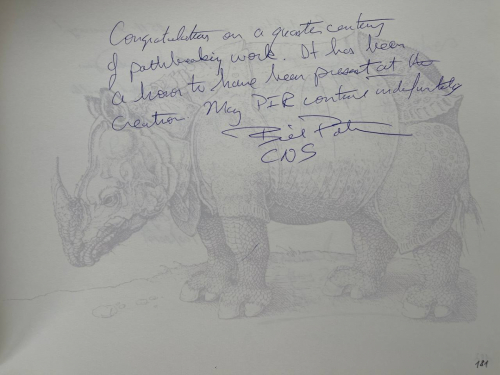 Congratulations on a quarter century
of pathbreaking work. It has been
a honor to have been present at the
creation May PIR continue indefinitely
Bill Potter
CNS
181